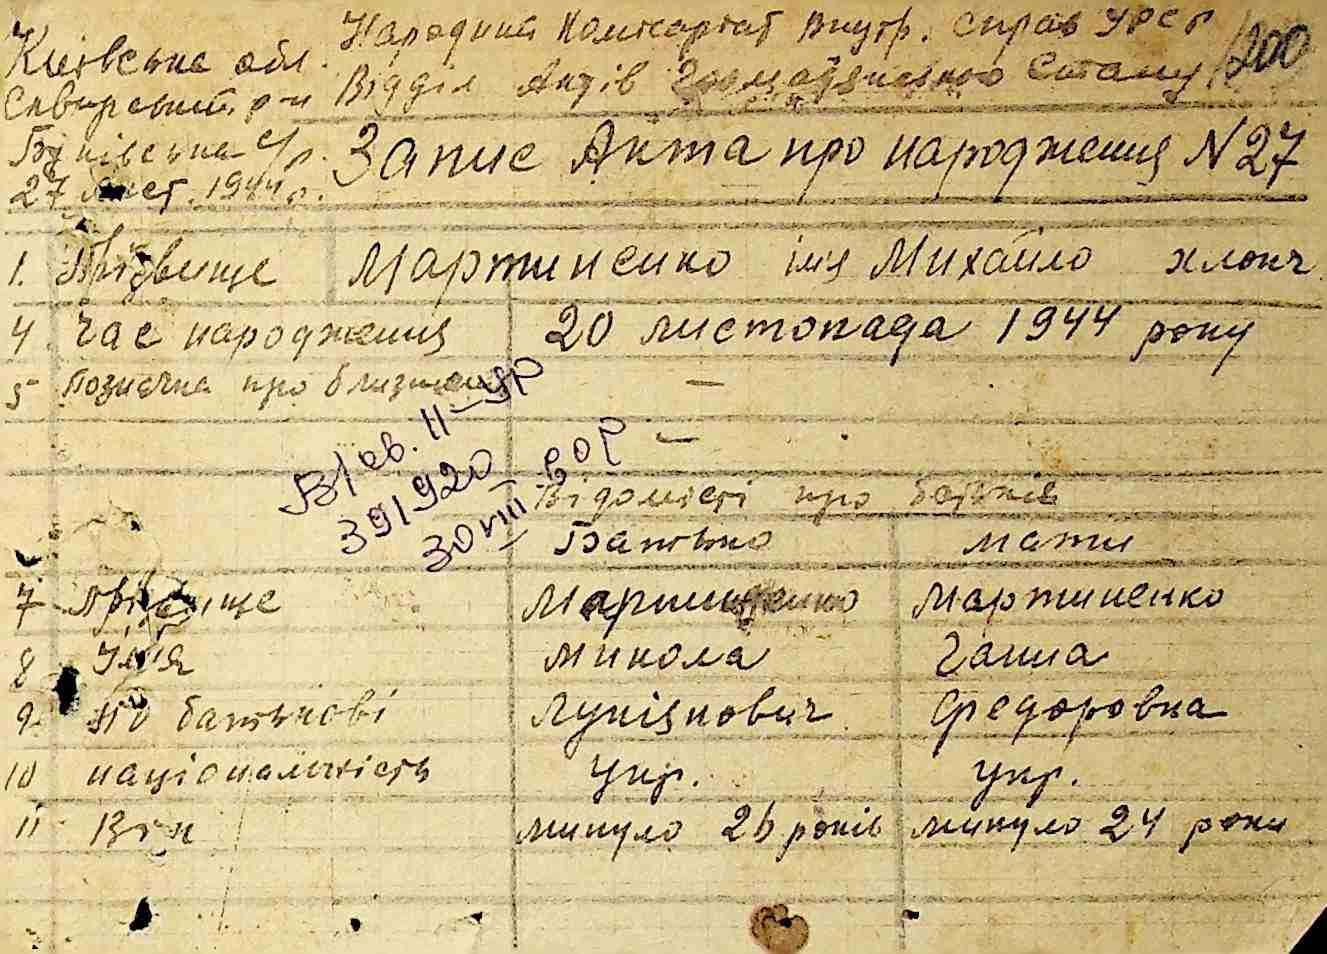 Київська обл.
Сквирський р-н
Буківська с/р.
27 лист. 1944 р.
Народний Комісаріат Внутр. Справ УРСР
Відділ Актів Громадянського Стану
1200
Запис Акта про народження N 27
1. Прізвище Мартиненко імя Михайло хлопч.
4 Час народження 20 листопада 1944 року
5 Позначка про близнят —
—
В/св. II-УР
391920
30 VIII
Відомості про батьків
Батько мати
7 Прізвище Мартиненко Мартиненко
8 Ім'я Микола Ганна
9 По батькові Лукіянович Федоровна
10 національність укр. укр.
11 Вік минуло 26 років минуло 24 роки